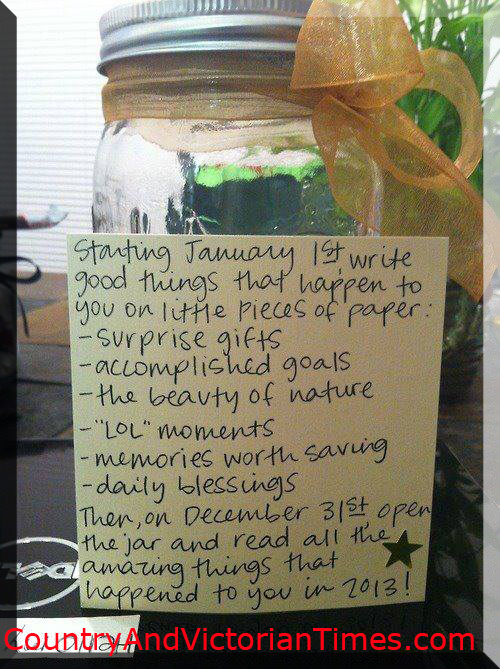 Starting January 1st, write
good things that happen to
you on little pieces of paper:
- surprise gifts
- accomplished goals
- the beauty of nature
- "LOL" moments
- memories worth saving
- daily blessings
Then, on December 31st, open
the jar and read all the
amazing things that
happened to you in 2013!
DELL
CountryAndVictorianTimes.com